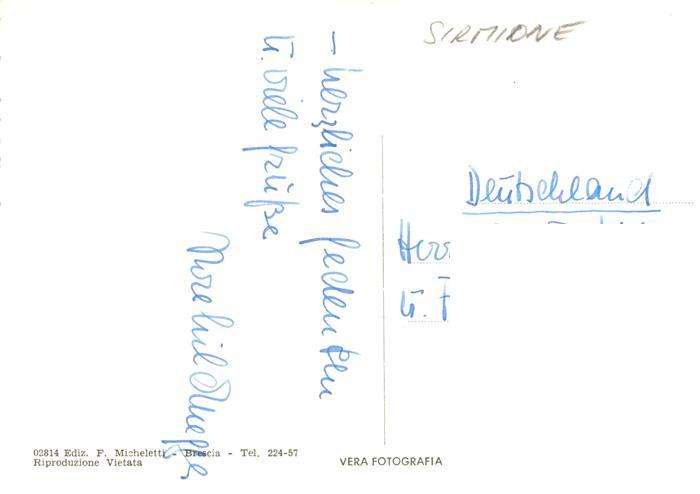 SIRMIONE
- herzliches Gedenken
u. viele Grüße
Deutschland
Herr
u. F
02814 Ediz. F. Micheletti - Brescia - Tel. 224-57
Riproduzione Vietata
VERA FOTOGRAFIA